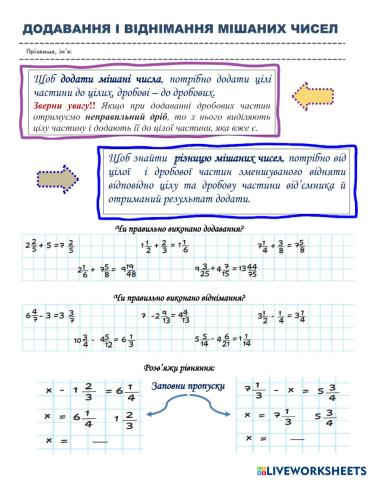 ДОДАВАННЯ І ВІДНІМАННЯ МІШАНИХ ЧИСЕЛ
Прізвище, ім'я:
Щоб додати мішані числа, потрібно додати цілі
частини до цілих, дробові – до дробових.
Зверни увагу!! Якщо при додаванні дробових частин
отримуємо неправильний дріб, то з нього виділяють
цілу частину і додають її до цілої частини, яка вже є.
Щоб знайти різницю мішаних чисел, потрібно від
цілої і дробової частин зменшуваного відняти
відповідно цілу та дробову частини від'ємника й
отриманий результат додати.
Чи правильно виконано додавання?
2 2/5 + 5 = 7 2/5 1 1/2 + 2/3 = 1 1/6 7 1/4 + 3/8 = 7 5/8
2 1/6 + 7 5/8 = 9 19/48 9 3/25 + 4 7/15 = 13 44/75
Чи правильно виконано віднімання?
6 4/7 - 3 = 3 3/7 7 - 2 9/13 = 4 4/13 3 1/2 - 1/4 = 3 1/4
10 3/4 - 4 5/12 = 6 1/3 5 5/14 - 4 6/21 = 1 1/14
Розв'яжи рівняння:
Заповни пропуски
x - 1 2/3 = 6 1/4
x = 6 1/4 1 2/3
x =
7 1/3 - x = 5 3/4
x = 7 1/3 5 3/4
x =
LIVEWORKSHEETS